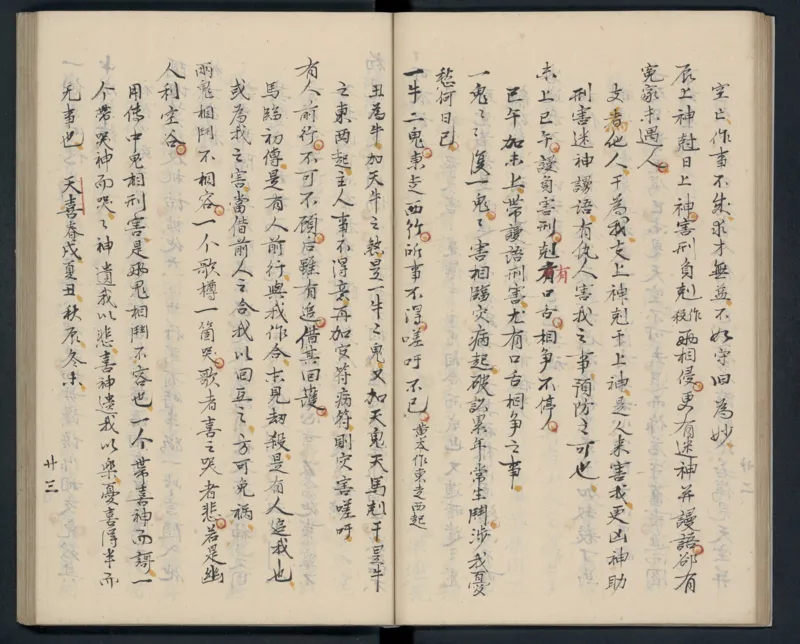 空亡作事不成求才無益不如守旧為妙
辰上神尅日上神害刑負剋殺作兩相侵更有迷神并謾語卻有
冤家未遇人
支看他人干為我支上神剋干上神是人来害我更凶神助
刑害迷神謾語有仇人害我之事預防之可也
未上巳午謾負害刑剋有口舌相争不停
巳午加未上帶謾語刑害尤有口舌相争之事
一鬼之又復一鬼之害相臨灾病起破訟累年常生鬥涉我憂
愁何日已
一牛二鬼東走西行所事不淂嗟吁不已黃本作東走西起
丑為牛加天牛之煞是一牛之鬼又加天鬼天馬剋干是牛
之東西起主人事不淂意再加灾符病符則灾害嗟吁
有人前行不可不顧后雖有追借其回護
馬臨初傳是有人前行與我作合末見劫殺是有人追我也
或為我之害當借前人之合我以回互之方可免禍
兩鬼相鬥不相容一个歌樽一箇哭歌者喜之哭者悲若是幽
人利空谷
用傳中鬼相刑害是兩鬼相鬥不容也一个帶喜神而謌一
个帶哭神而哭之神遺我以悲喜神遺我以樂憂喜淂半而
无事也 天喜春戌夏丑秋辰冬未
廿三